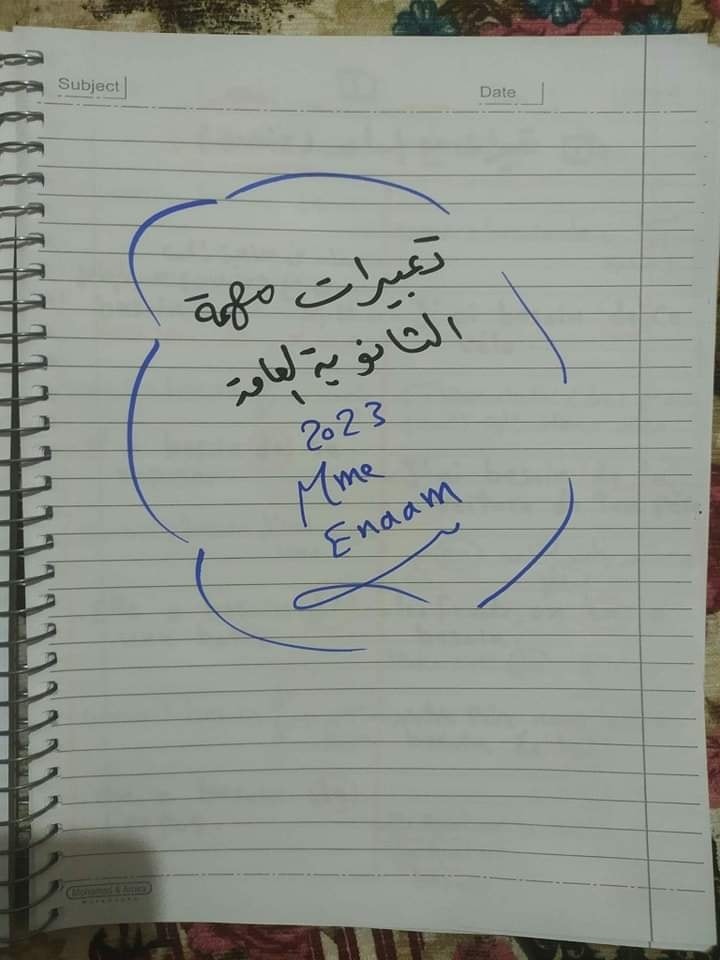 Subject
Date
تعبيرات مهمة
الثانوية العامة
2023
Mme
Enaam
Mohamed & Amira